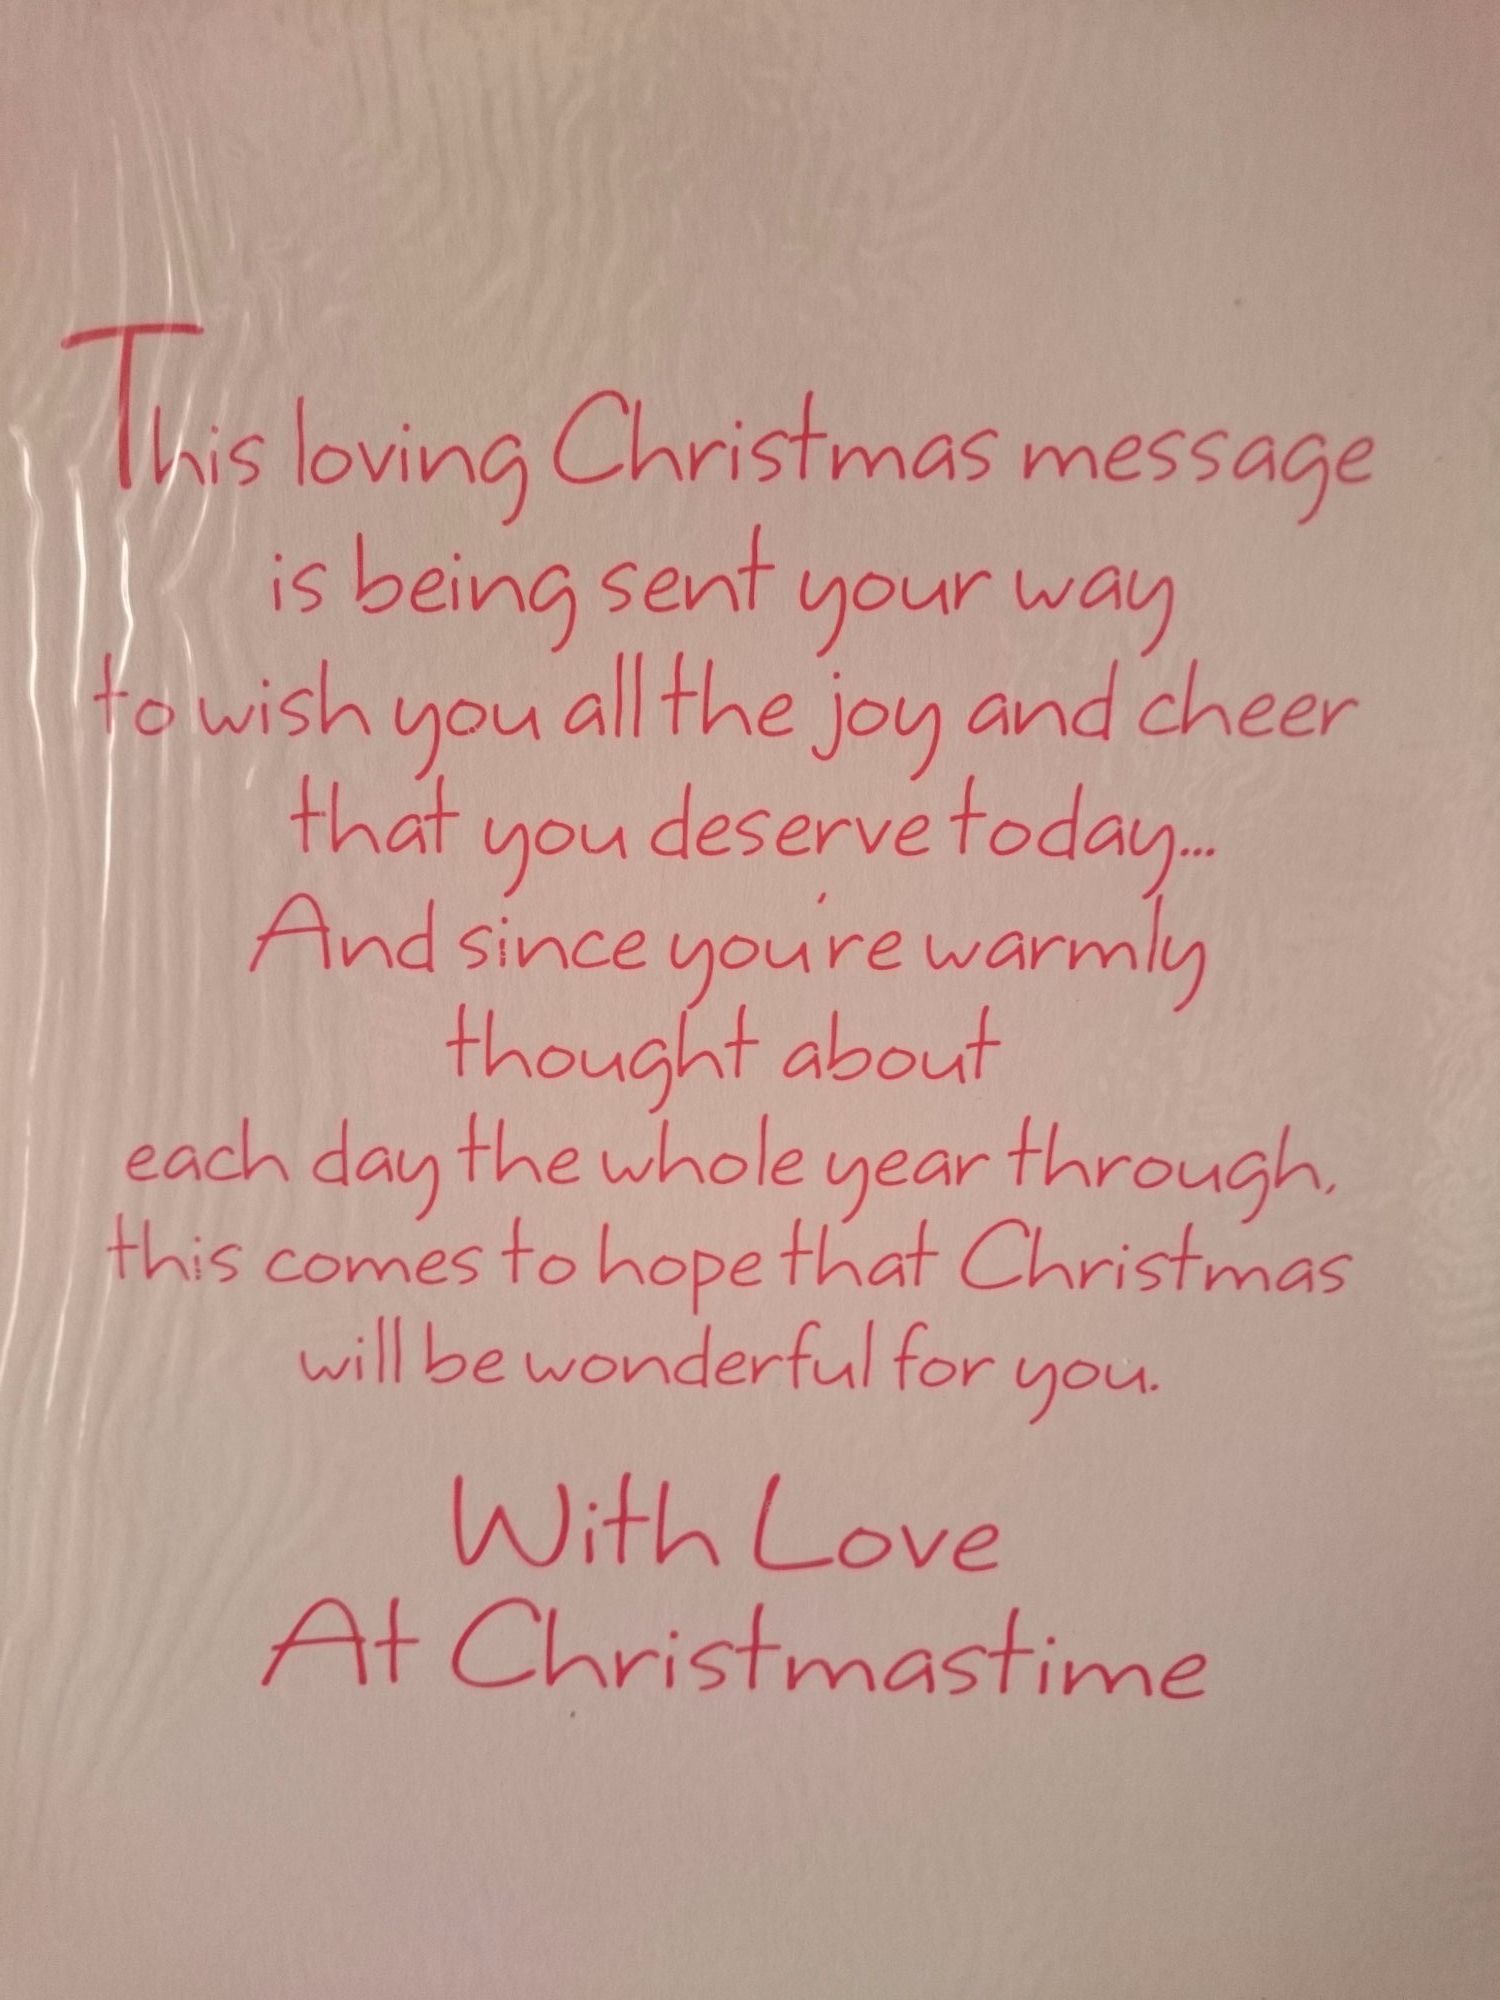 This loving Christmas message
is being sent your way
to wish you all the joy and cheer
that you deserve today...
And since you're warmly
thought about
each day the whole year through,
this comes to hope that Christmas
will be wonderful for you.
With Love
At Christmastime